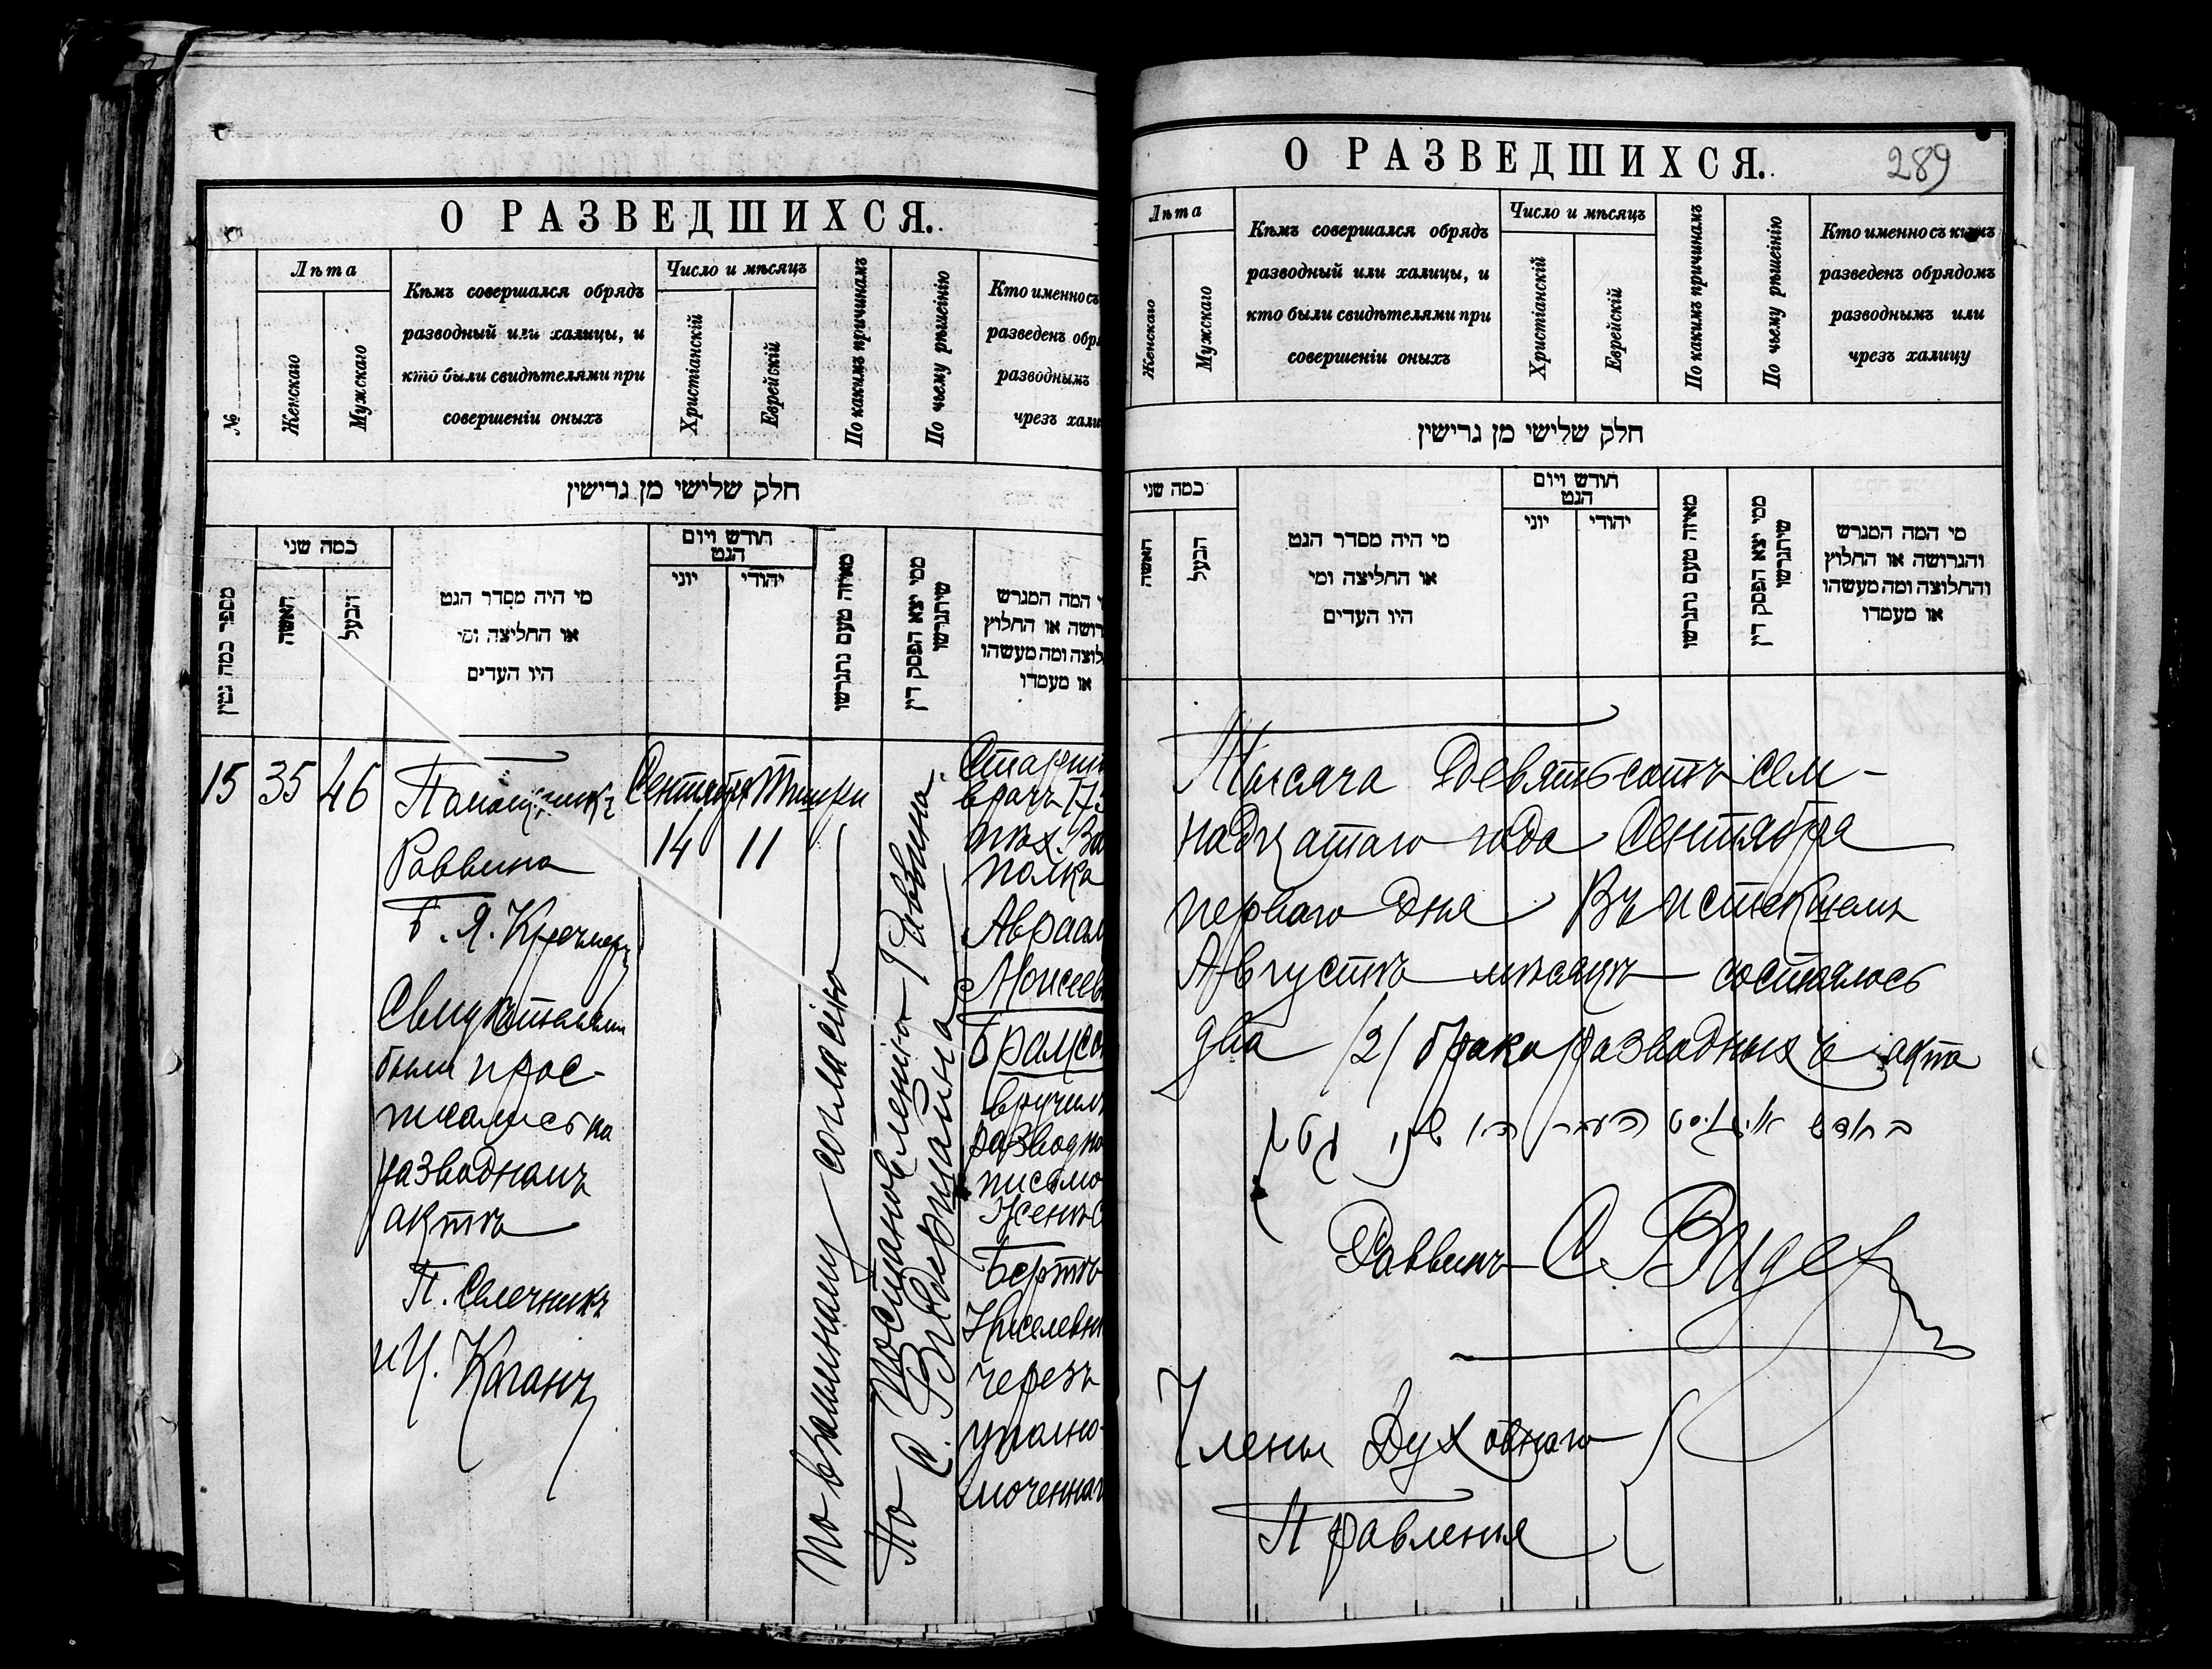 О РАЗВЕДШИХСЯ.
№
Лѣта
Женскаго
Мужскаго
Кѣмъ совершался обрядъ
разводный или халицы, и
кто были свидѣтелями при
совершеніи оныхъ
Число и мѣсяцъ
Христіанскій
Еврейскій
По какимъ причинамъ
По чьему рѣшеінію
Кто именно съ
разведенъ обр
разводнымъ
чрезъ хали
חלק שלישי מן גרישין
מספר כמה גטין
כמה שני
האשה
הבעל
מי היה מסדר הגט
או החליצה ומי
היו העדים
חודש ויום
הגט
יוני
יהודי
מאיזה טעם נתגרשו
ממי יצא הפסק דין
שיתגרשו
י המה המגרש
רושה או החלוץ
לוצה ומה מעשהו
או מעמדו
15
35
46
Помощникъ
Раввина
Б. Я. Кречмеръ
Свидѣтелями
были прос-
писались на
разводномъ
актѣ
П. Слечникъ
и Ц. Каганъ
Сентября
14
Тишри
11
По взаимному согласію
По Постановленію Раввина
С. Видермана
Старш
врачъ 173
пѣх. Ва
полка
Авраам
Моисеев
Брамсо
вручилъ
разводно
письмо
Женѣ С
Бертѣ
Киселевн
черезъ
уполно-
моченнаг
О РАЗВЕДШИХСЯ.
289
Лѣта
Женскаго
Мужскаго
Кѣмъ совершался обрядъ
разводный или халицы, и
кто были свидѣтелями при
совершеніи оныхъ
Число и мѣсяцъ
Христіанскій
Еврейскій
По какимъ причинамъ
По чьему рѣшеінію
Кто именно съ кѣмъ
разведенъ обрядомъ
разводнымъ или
чрезъ халицу
חלק שלישי מן גרישין
כמה שני
האשה
הבעל
מי היה מסדר הגט
או החליצה ומי
היו העדים
חודש ויום
הגט
יוני
יהודי
מאיזה טעם נתגרשו
ממי יצא הפסק דין
שיתגרשו
מי המה המגרש
והגרושה או החלוץ
והחלוצה ומה מעשהו
או מעמדו
Тысяча девятьсотъ сем-
надцатаго года Сентября
перваго дня Въ истекшемъ
Августѣ мѣсяцѣ состоялось
два /2/ бракоразводныхъ акта
בחודש אויגוסט העבר היו שני גטין
Раввинъ С. Видер
Члены Духовнаго
Правленія